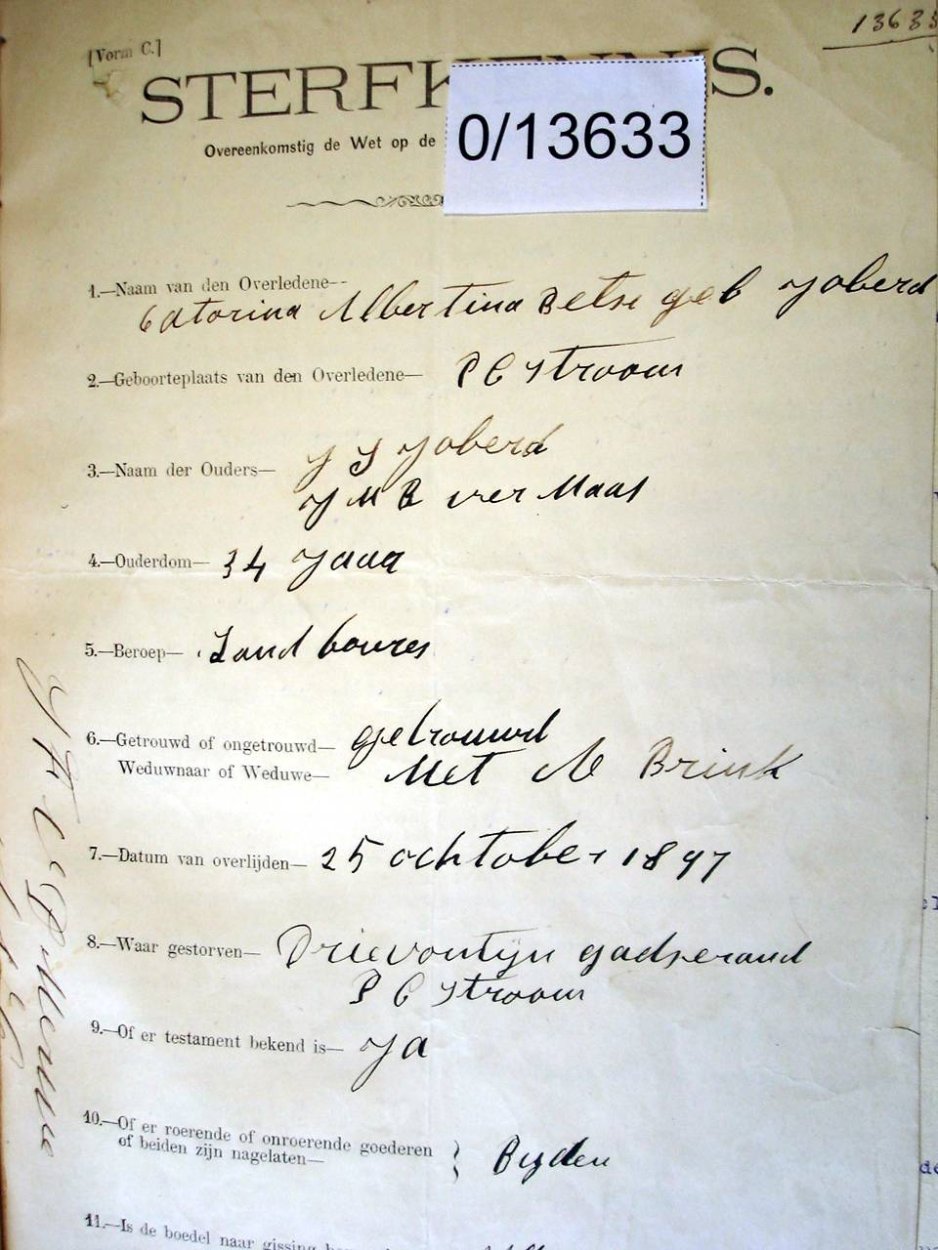 [Vorm C.]
13633
STERFK
S.
Overeenkomstig de Wet op de
0/13633
1.—Naam van den Overledene--
Catorina Albertina Betsi geb Joberd
2.—Geboorteplaats van den Overledene—
P C Stroom
3.—Naam der Ouders—
J J Joberd
J M B ver Maas
4.—Ouderdom— 34 Jaar
5.—Beroep— Land boures
6.—Getrouwd of ongetrouwd— getrouwd
Weduwnaar of Weduwe— Met Brink
7.—Datum van overlijden— 25 ochtober 1897
8.—Waar gestorven— Drievontyn gadserand
P C Stroom
9.—Of er testament bekend is— Ja
10.—Of er roerende of onroerende goederen
of beiden zijn nagelaten—
Byden
11.—Is de boedel naar gissing